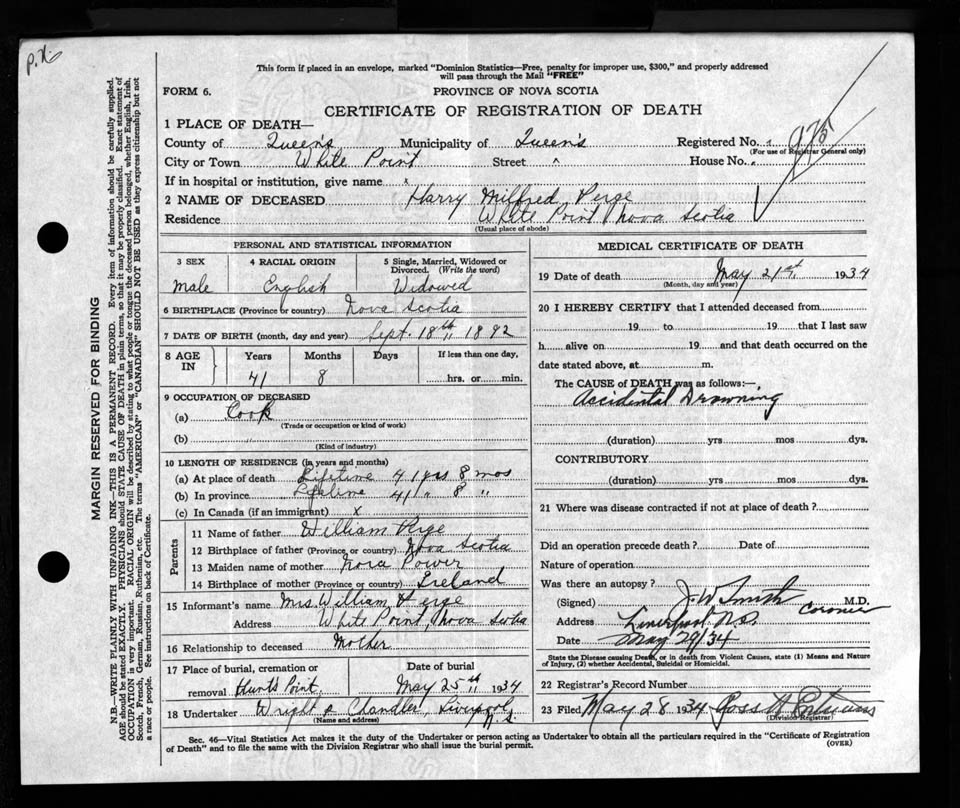 P.H.
This form if placed in an envelope, marked "Dominion Statistics—Free, penalty for improper use, $300," and properly addressed
will pass through the Mail "FREE"
FORM 6.
PROVINCE OF NOVA SCOTIA
CERTIFICATE OF REGISTRATION OF DEATH
1 PLACE OF DEATH—
County of Queen's Municipality of Queen's Registered No. 975
(For use of Registrar General only)
City or Town White Point Street House No.
If in hospital or institution, give name x
2 NAME OF DECEASED Harry Milfred Verge
Residence White Point, Nova Scotia
(Usual place of abode)
PERSONAL AND STATISTICAL INFORMATION
3 SEX 4 RACIAL ORIGIN 5 Single, Married, Widowed or Divorced. (Write the word)
Male English Widowed
6 BIRTHPLACE (Province or country) Nova Scotia
7 DATE OF BIRTH (month, day and year) Sept. 18th 1892
8 AGE IN Years Months Days If less than one day,
41 8 hrs. or min.
9 OCCUPATION OF DECEASED
(a) Cook
(Trade or occupation or kind of work)
(b)
(Kind of industry)
10 LENGTH OF RESIDENCE (in years and months)
(a) At place of death Lifetime 41 yrs 8 mos
(b) In province Lifetime 41 " 8 "
(c) In Canada (if an immigrant) x
Parents
11 Name of father William Verge
12 Birthplace of father (Province or country) Nova Scotia
13 Maiden name of mother Nora Power
14 Birthplace of mother (Province or country) Ireland
15 Informant's name Mrs. William Verge
Address White Point, Nova Scotia
16 Relationship to deceased Mother
17 Place of burial, cremation or removal Hunts Point, Date of burial May 25th 1934
18 Undertaker Wright & Chandler, Liverpool, N.S.
(Name and address)
MEDICAL CERTIFICATE OF DEATH
19 Date of death May 21st, 1934
(Month, day and year)
20 I HEREBY CERTIFY that I attended deceased from
19 to 19 that I last saw
h alive on 19 and that death occurred on the
date stated above, at m.
The CAUSE of DEATH was as follows:—
Accidental Drowning
(duration) yrs mos dys.
CONTRIBUTORY
(duration) yrs. mos. dys.
21 Where was disease contracted if not at place of death?
Did an operation precede death? Date of
Nature of operation
Was there an autopsy?
(Signed) J. W. Smith M.D.
Coroner
Address Liverpool N.S.
Date May 29/34
State the Disease causing Death, or in death from Violent Causes, state (1) Means and Nature
of Injury, (2) whether Accidental, Suicidal or Homicidal.
22 Registrar's Record Number
23 Filed May 28 1934
(Division Registrar)
Sec. 46—Vital Statistics Act makes it the duty of the Undertaker or person acting as Undertaker to obtain all the particulars required in the "Certificate of Registration
of Death" and to file the same with the Division Registrar who shall issue the burial permit. (OVER)
MARGIN RESERVED FOR BINDING
N.B.—WRITE PLAINLY WITH UNFADING INK—THIS IS A PERMANENT RECORD. Every item of information should be carefully supplied.
AGE should be stated EXACTLY. PHYSICIANS should STATE CAUSE OF DEATH in plain terms, so that it may be properly classified. Exact statement of
OCCUPATION is very important. RACIAL ORIGIN will be described by stating to what people or tongue the deceased person belonged, whether English, Irish,
Scotch, French, German, Russian, Ruthenian, etc. The terms "AMERICAN" or "CANADIAN" SHOULD NOT BE USED as they express citizenship but not
a race or people. See instructions on back of Certificate.